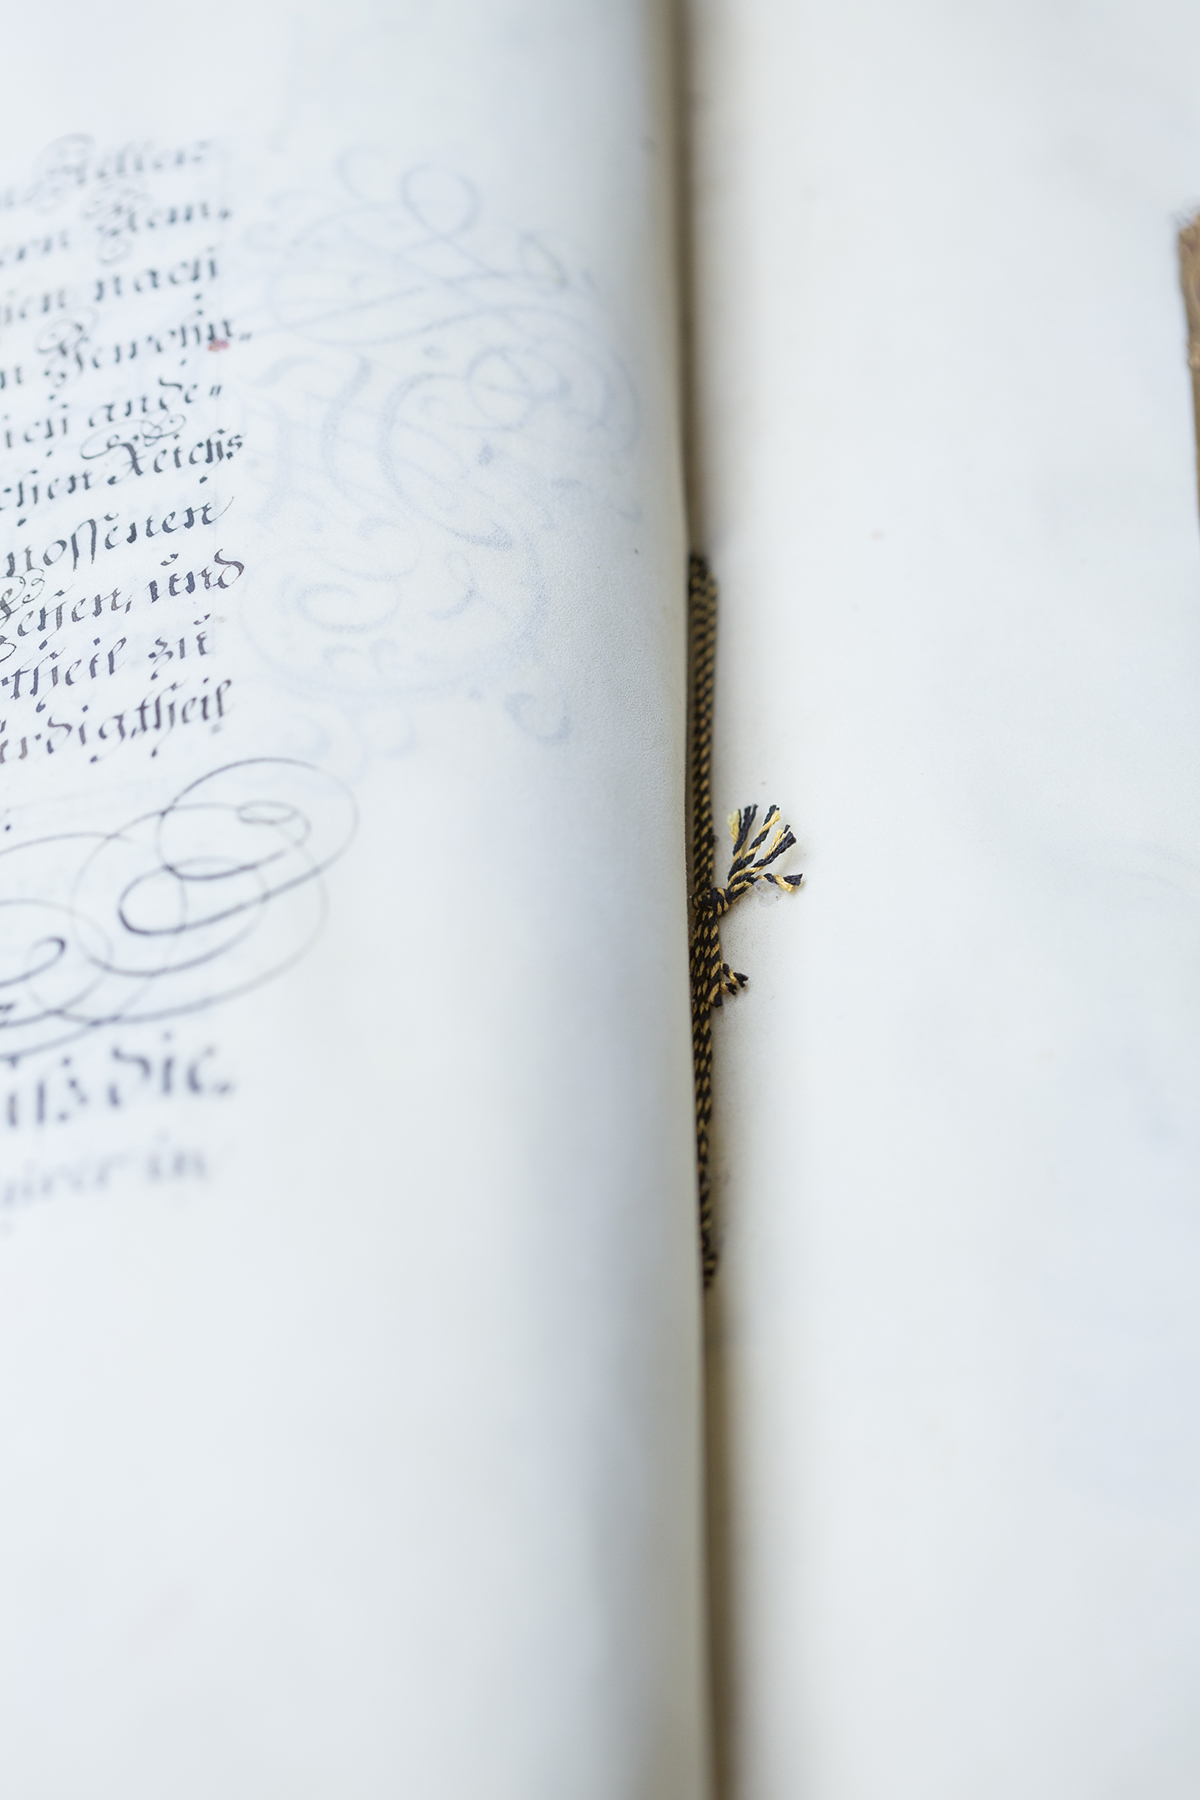 Adler
ern Item,
ien nach
n Gewohn„
ich ande„
chen Reichs
nossenen
gehen, und
rtheil zu
ürdigtheil
uß die
in